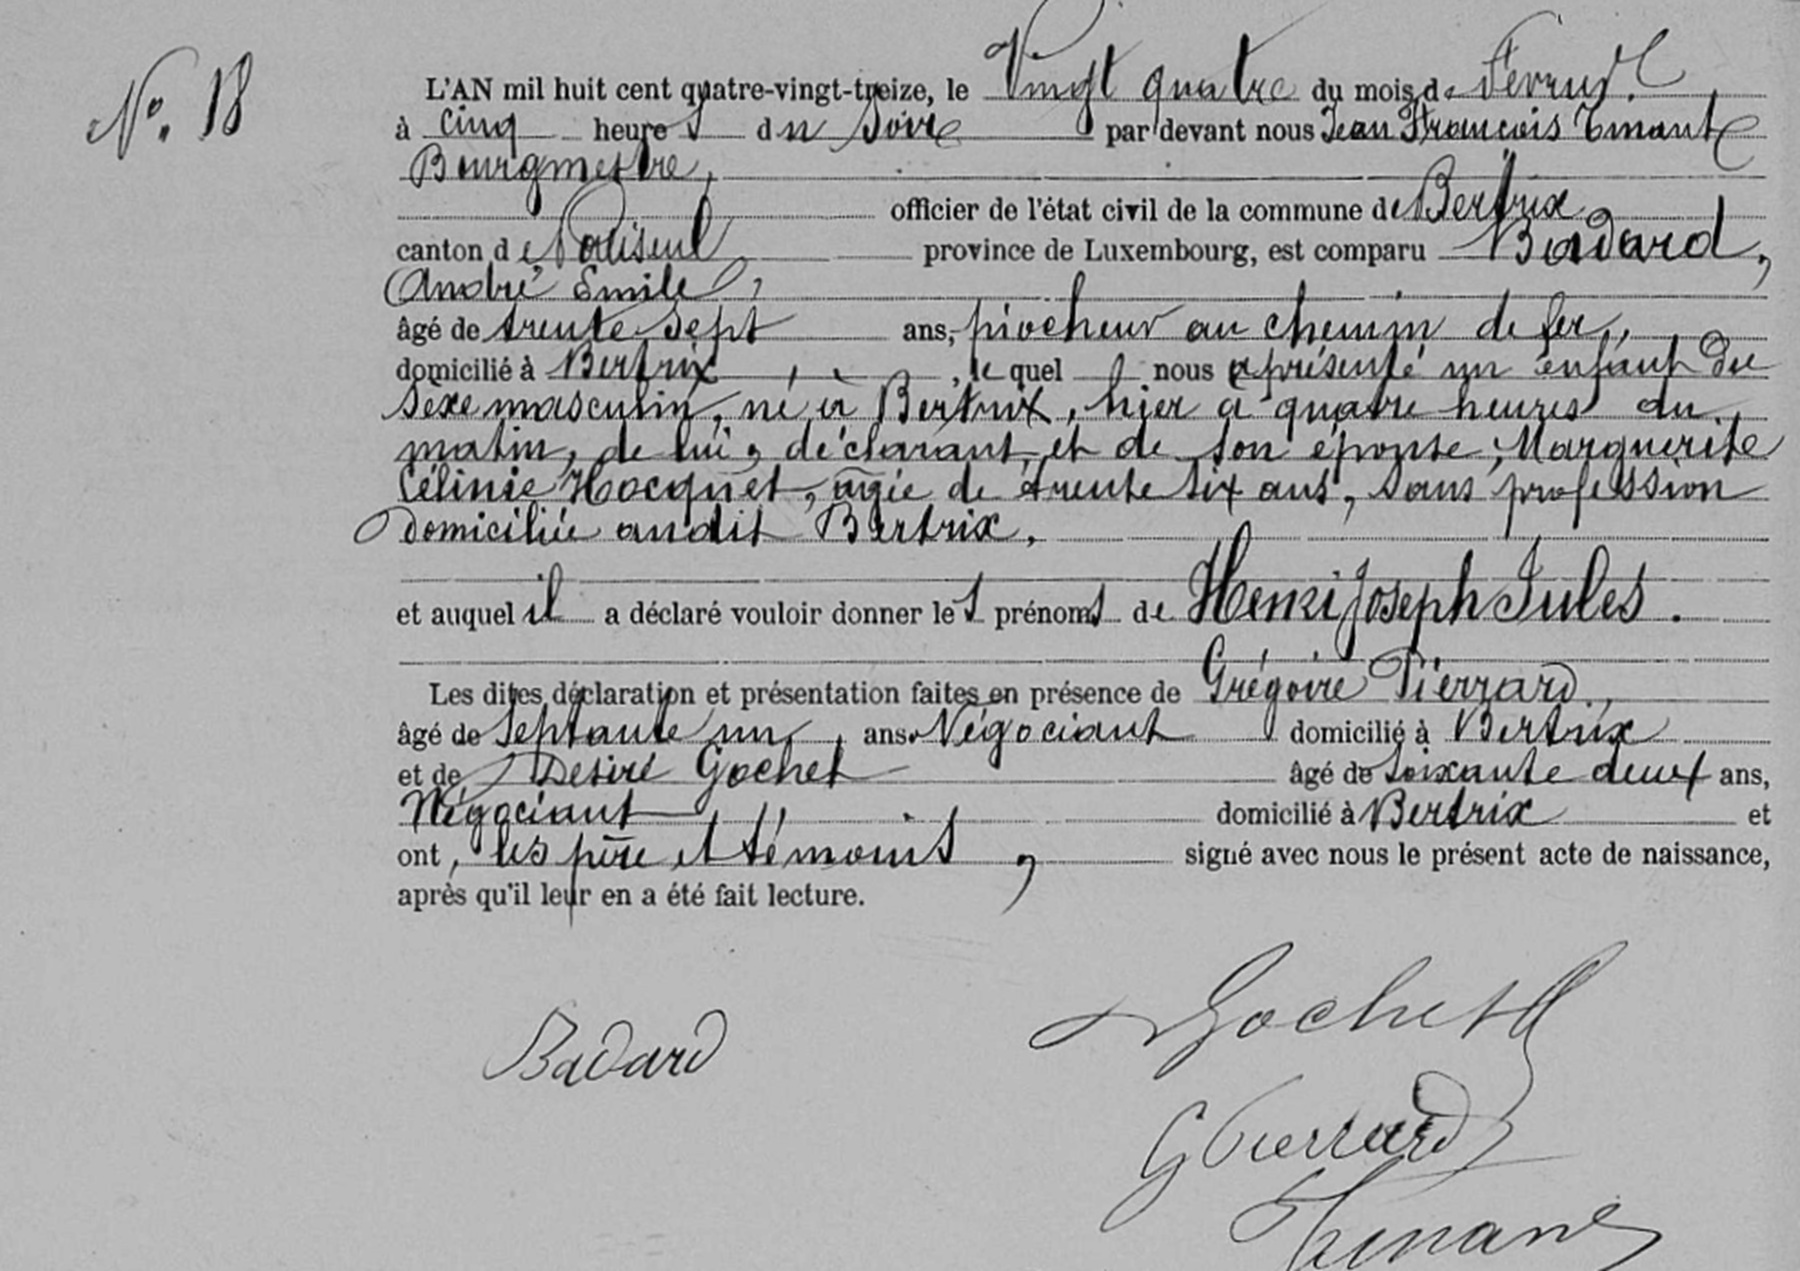 N°. 18
L'AN mil huit cent quatre-vingt-treize, le Vingt quatre du mois de Février
à cinq heures du soir par devant nous Jean François Tinant
Bourgmestre,
officier de l'état civil de la commune de Bertrix
canton de Paliseul province de Luxembourg, est comparu Badard,
André Emile,
âgé de trente sept ans, piocheur au chemin de fer,
domicilié à Bertrix, lequel nous a présenté un enfant du
sexe masculin, né à Bertrix, hier à quatre heures du
matin, de lui, déclarant, et de son épouse, Marguerite
Célinie Hocquet, agée de trente six ans, sans profession
domiciliée audit Bertrix,
et auquel il a déclaré vouloir donner les prénoms de Henri Joseph Jules.
Les dites déclaration et présentation faites en présence de Grégoire Pierrard,
âgé de septante un ans, Négociant domicilié à Bertrix
et de Désiré Gochet âgé de soixante deux ans,
Négociant domicilié à Bertrix et
ont, les père et témoins, signé avec nous le présent acte de naissance,
après qu'il leur en a été fait lecture.
Gochet
Badard
G Pierrard